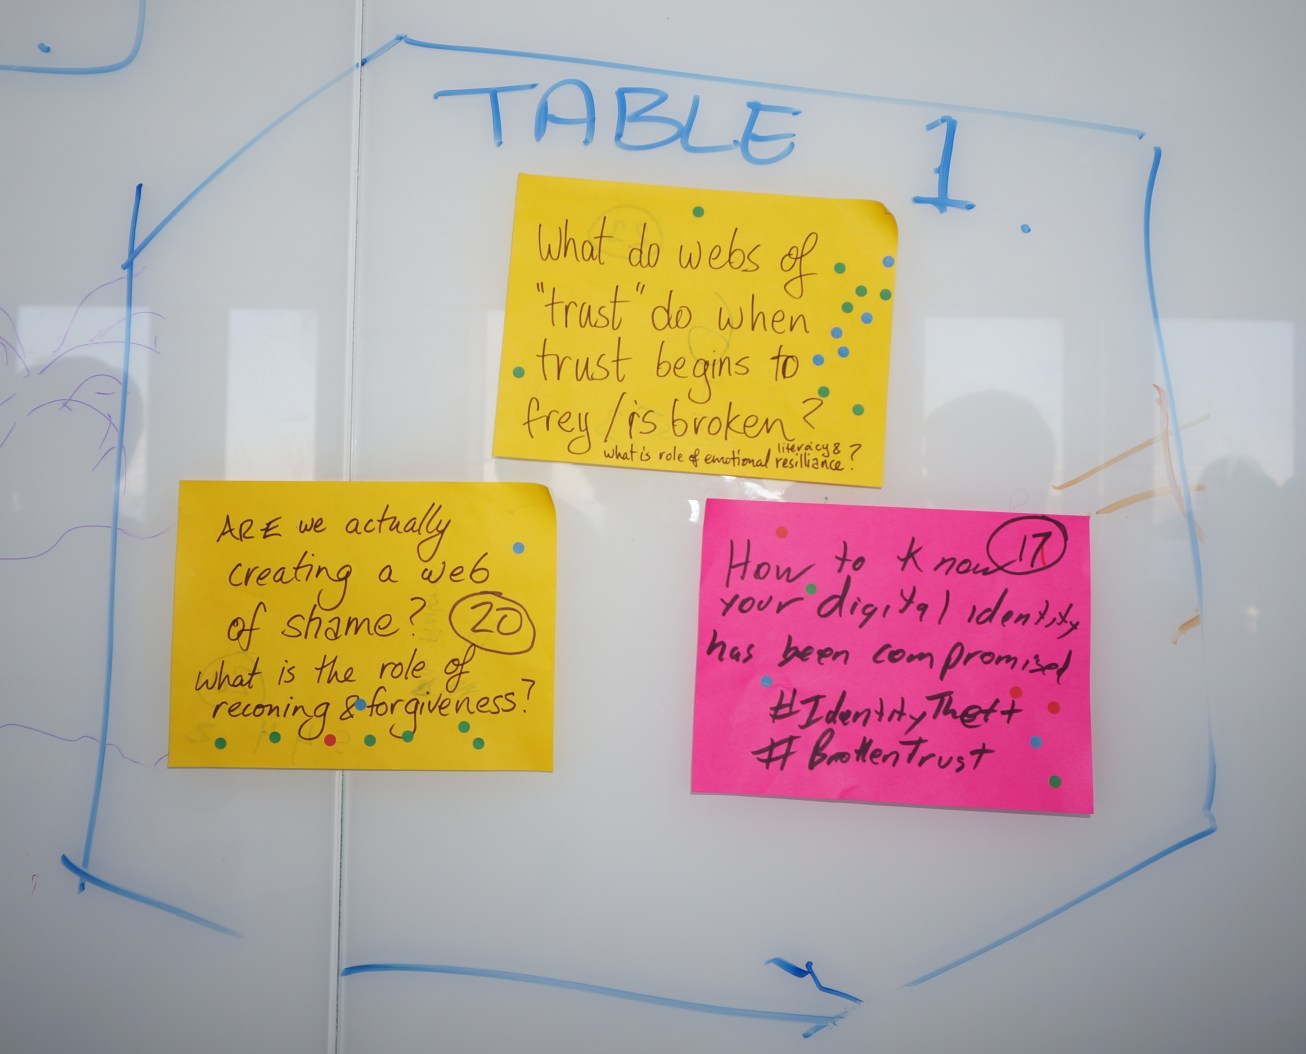 TABLE 1
What do webs of
"trust" do when
trust begins to
frey / is broken?
literacy &
what is role of emotional resilliance?
ARE we actually
creating a web
of shame?
20
what is the role of
reconing & forgiveness?
17
How to Know
your digital identity
has been compromised
#IdentityTheft
#BrokenTrust